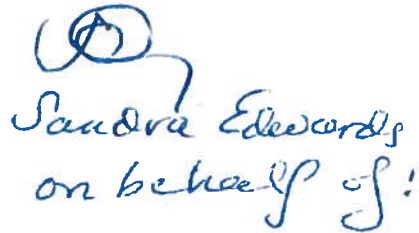 Sandra Edwards
on behalf of: